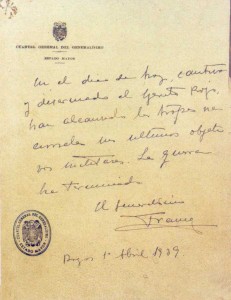 CUARTEL GENERAL DEL GENERALISIMO
ESTADO MAYOR
En el dia de hoy, cautivo
y desarmado el Ejercito Rojo,
han alcanzado las tropas na-
cionales sus ultimos objeti-
vos militares. La guerra
ha terminado
El Generalisimo
Franco
Burgos 1º Abril 1939.
CUARTEL GENERAL DEL GENERALISIMO
ESTADO MAYOR